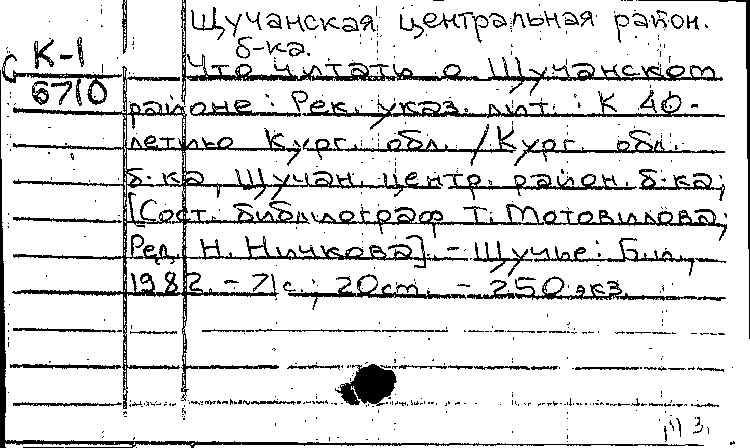 Щучанская центральная район.
б-ка.
К-1
6710
Что читать о Щучанском
районе: Рек. указ. лит.: К 40-
летию Кург. обл. /Кург. обл.
б-ка, Щучан. центр. район. б-ка;
[Сост. библиограф Т. Мотовилова;
Ред. Н. Ничкова]. - Щучье: Б.и.,
1982. - 71с.; 20см. - 250 экз.